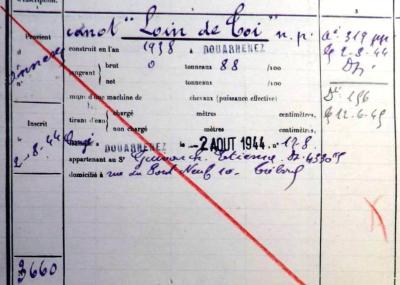 d'inscription.
canot "Loin de toi" n.p.
Provient
annexe
construit en l'an 1938 à DOUARNENEZ
jaugeant { brut 0 tonneaux 88 /100
net tonneaux /100
muni d'une machine de chevaux (puissance effective)
tirant d'eau { chargé mètres centimètres.
non chargé mètres centimètres.
Inscrit
2-8-44
à DOUARNENEZ le -2 AOUT 1944 n° 178
appartenant au Sr Etienne Dz
domicilié à rue du Port Neuf 10 - Tréboul
3660
3
2-8-44
Dz
Dt 196
12-6-45